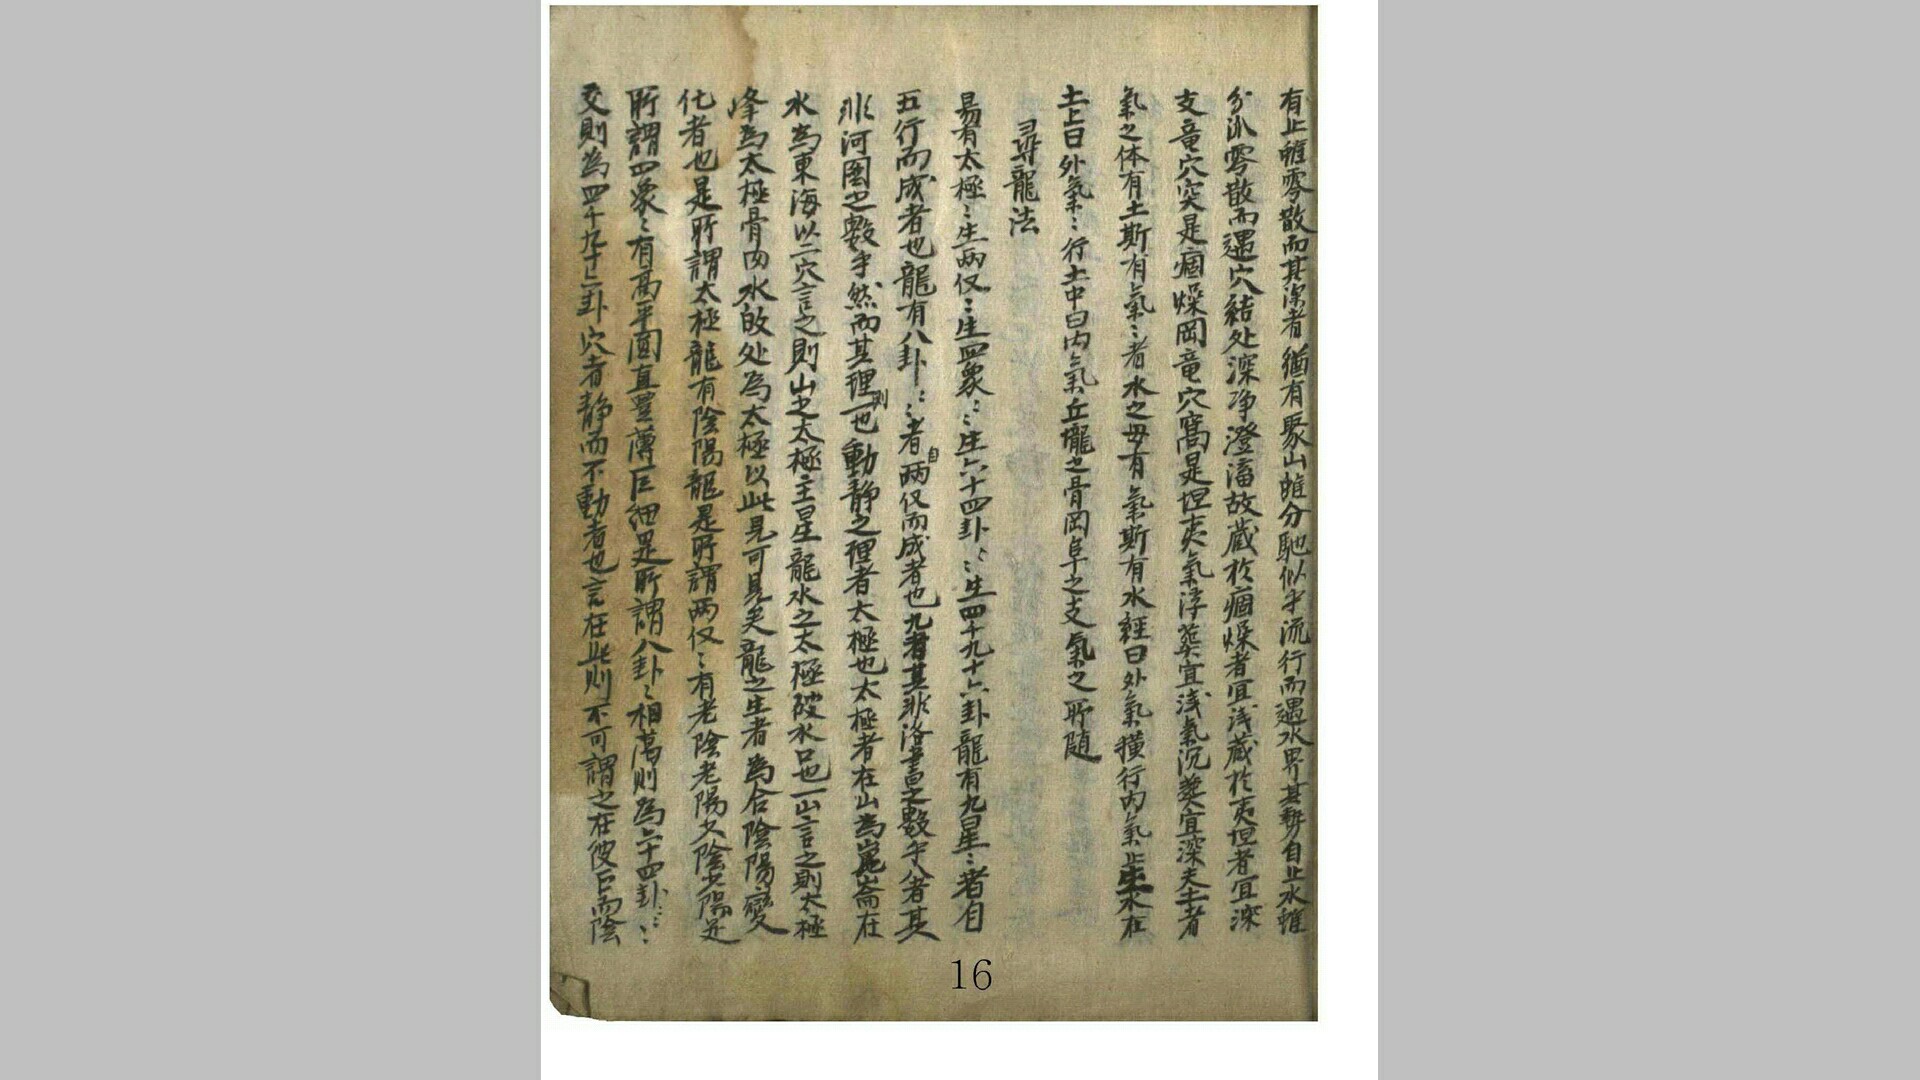 有止雖零散而其深者猶有聚山雖分馳似乎流行而遇水界其勢自止水雖
分派零散而遇穴結处深净澄滀故蔵於痼燥者宜浅蔵於夷坦者宜深
支竜穴突是痼燥岡竜穴窩是坦夷氣浮葬宜浅氣沉葬宜深夫土者
氣之体有土斯有氣〻者水之母有氣斯有水經曰外氣橫行內氣止生水在
土上曰外氣〻行土中曰内氣丘壠之骨岡阜之支氣之所随
尋龍法
易有太極〻生兩仪〻生四象〻〻生六十四卦〻〻生四千九十六卦龍有九星〻者自
五行而成者也龍有八卦〻〻者自兩仪而成者也九者其非洛書之數乎八者其
非河圖之數乎然而其理則一也動静之理者太極也太極者在山為崑崙在
水為東海以二穴言之則山之太極主星龍水之太極破水口也一山言之則太極
峰為太極骨肉水啟处為太極以此見可見矣龍之生者為合陰陽變
化者也是所謂太極龍有陰陽龍是所謂兩仪〻有老陰老陽少陰少陽是
所謂四象〻有高平圓直豊薄巨細是所謂八卦〻相蕩則為六十四卦〻〻
交則為四千九十六卦穴者静而不動者也言在此則不可謂之在彼巨而陰
16